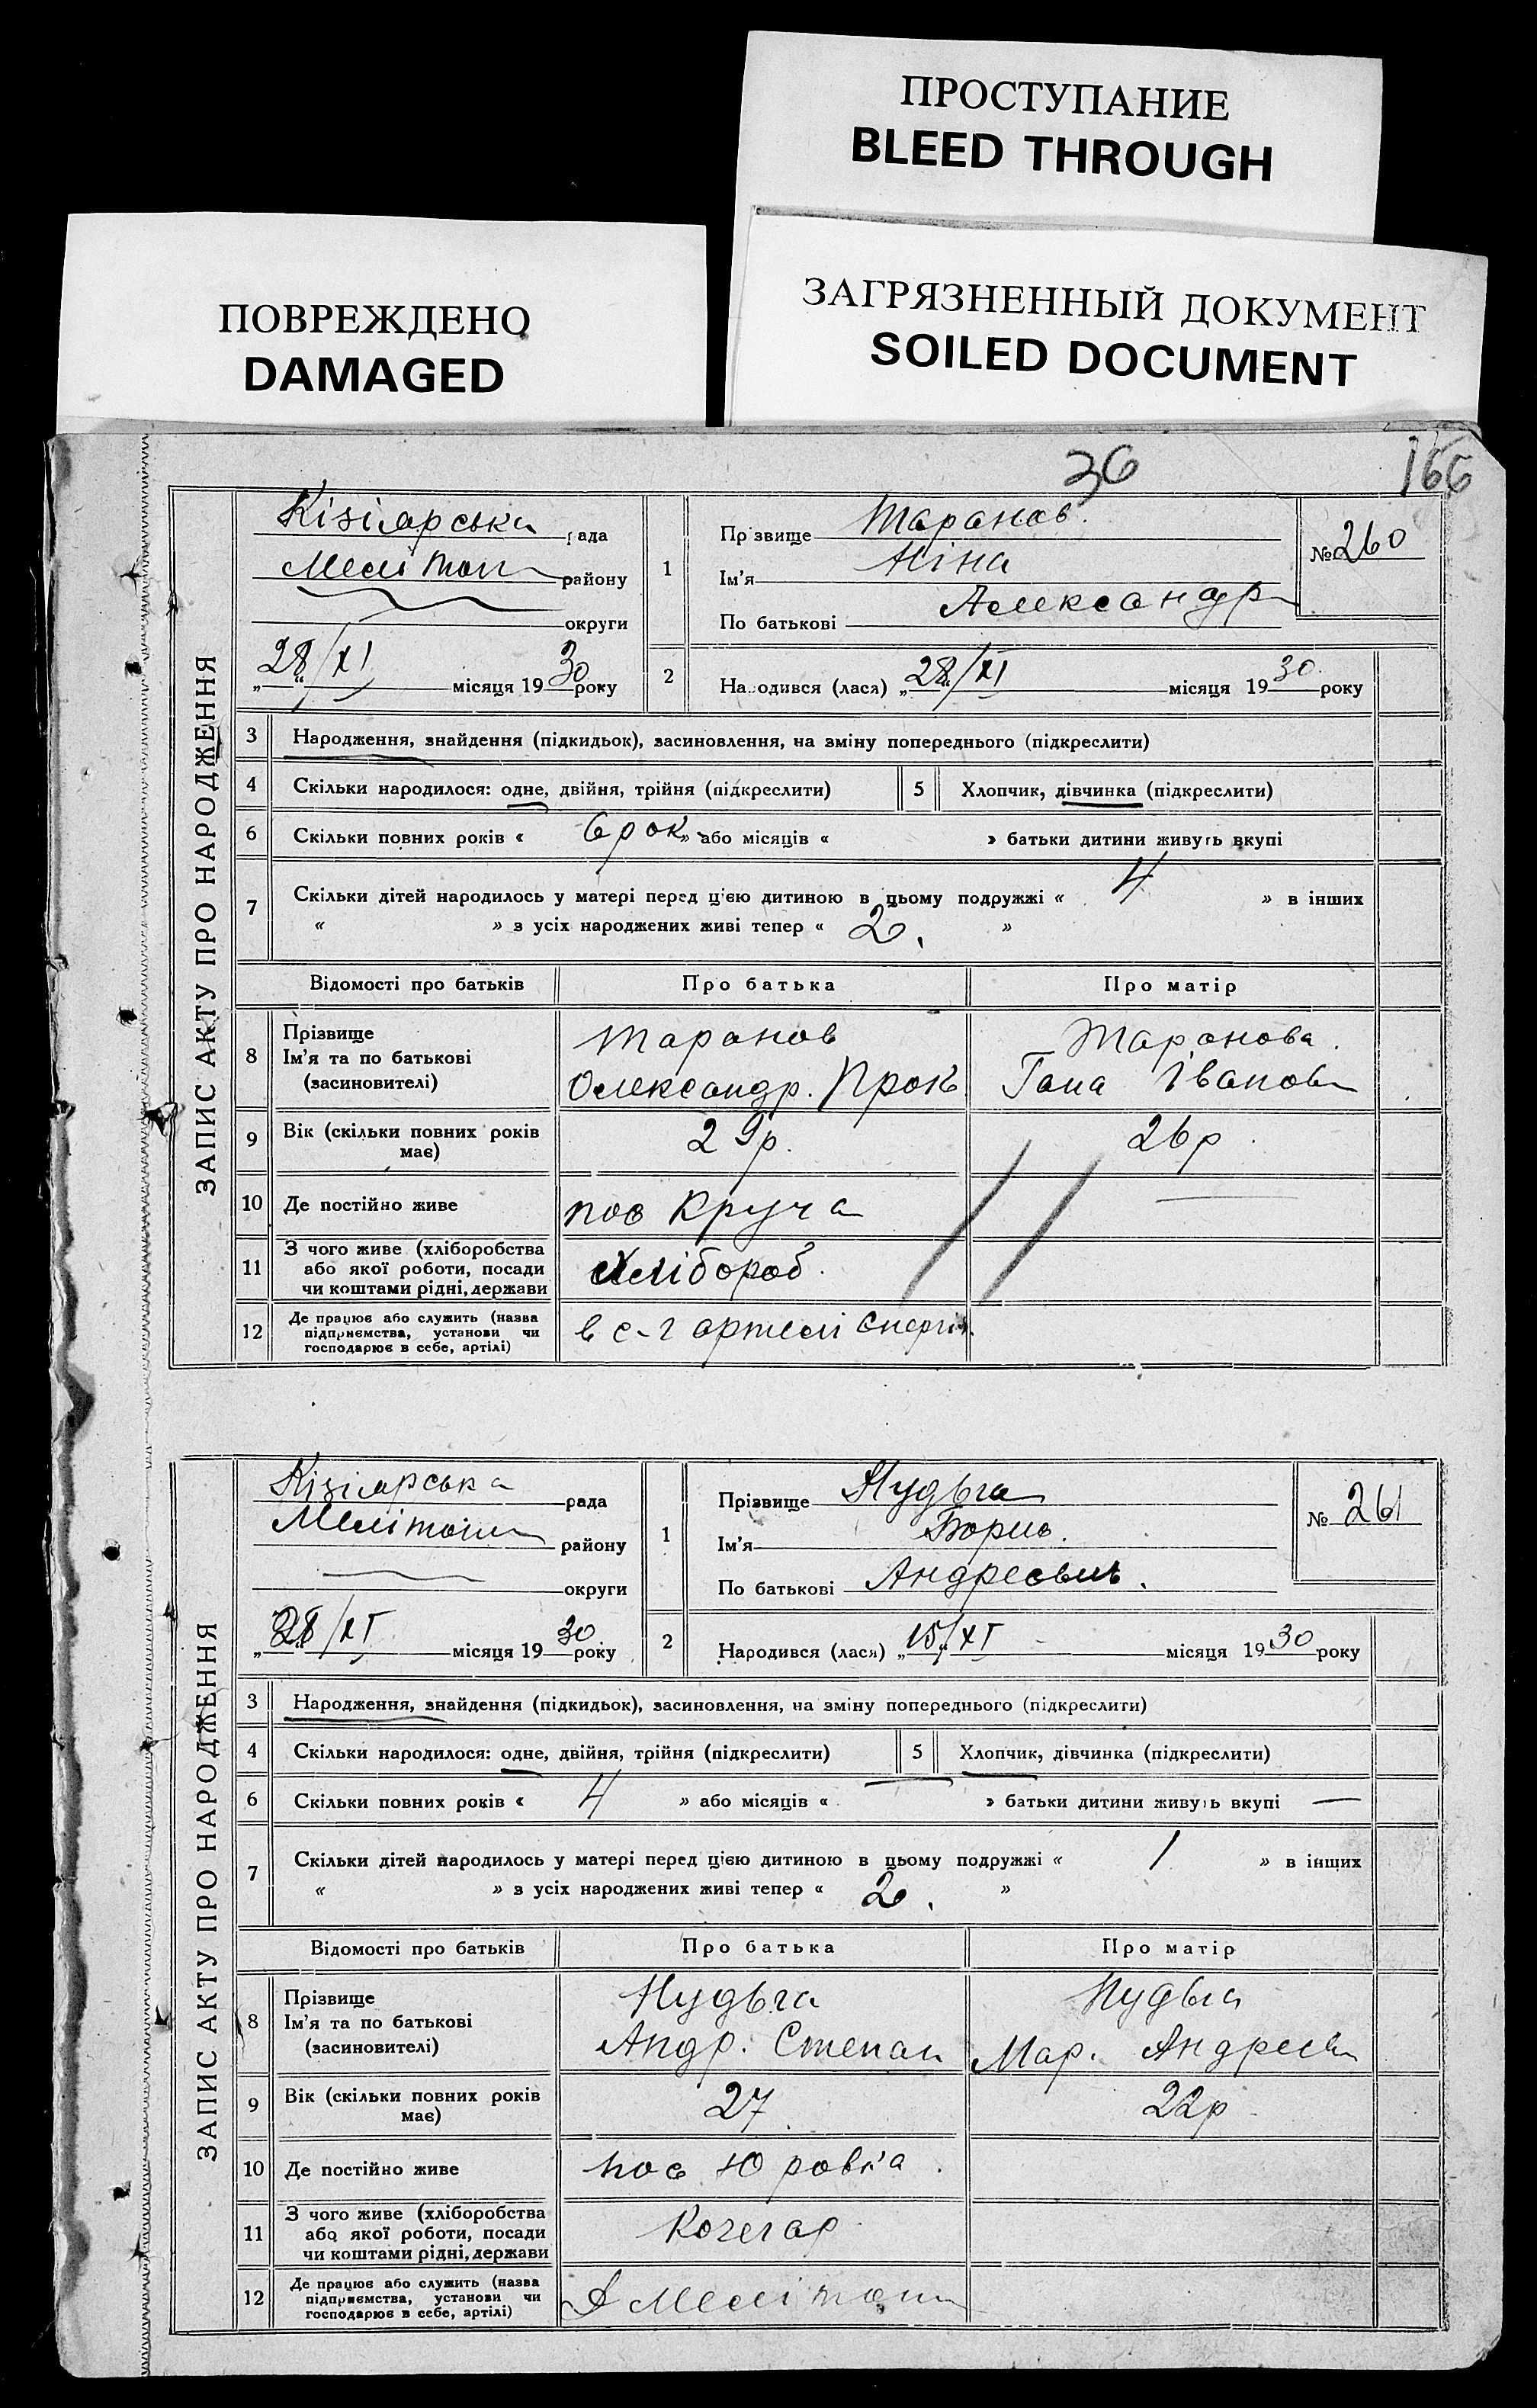 ПРОСТУПАНИЕ
BLEED THROUGH
ПОВРЕЖДЕНО
DAMAGED
ЗАГРЯЗНЕННЫЙ ДОКУМЕНТ
SOILED DOCUMENT
36
166
ЗАПИС АКТУ ПРО НАРОДЖЕННЯ
Кізіярська рада
Мелітоп району
округи
„28/XI місяця 1930 року
1
Прізвище Таранов.
Ім'я Ніна
По батькові Александр
№ 260
2
Народився (лася) „28/XI місяця 1930 року
3 Народження, знайдення (підкидьок), засиновлення, на зміну попереднього (підкреслити)
4 Скільки народилося: одне, двійня, трійня (підкреслити)
5 Хлопчик, дівчинка (підкреслити)
6 Скільки повних років « 6 рок » або місяців « » батьки дитини живуть вкупі
7 Скільки дітей народилось у матері перед цією дитиною в цьому подружжі « 4 » в інших
« » з усіх народжених живі тепер « 2. »
Відомості про батьків Про батька Про матір
8 Прізвище Таранов Таранова.
Ім'я та по батькові
(засиновителі) Олександр. Прок Гана Іванов
9 Вік (скільки повних років має) 29р. 26р.
10 Де постійно живе пос Круча —
11 З чого живе (хліборобства
або якої роботи, посади
чи коштами рідні, держави Хлібороб.
12 Де працює або служить (назва
підприємства, установи чи
господарює в себе, артілі) в с-г артелі
ЗАПИС АКТУ ПРО НАРОДЖЕННЯ
Кізіярська рада
Мелітоп району
округи
„28/XI місяця 1930 року
1
Прізвище Нудьга
Ім'я Борис.
По батькові Андреевич.
№ 261
2
Народився (лася) „15/XI місяця 1930 року
3 Народження, знайдення (підкидьок), засиновлення, на зміну попереднього (підкреслити)
4 Скільки народилося: одне, двійня, трійня (підкреслити)
5 Хлопчик, дівчинка (підкреслити)
6 Скільки повних років « 4 » або місяців « » батьки дитини живуть вкупі —
7 Скільки дітей народилось у матері перед цією дитиною в цьому подружжі « 1 » в інших
« » з усіх народжених живі тепер « 2. »
Відомості про батьків Про батька Про матір
8 Прізвище Нудьга Нудьга
Ім'я та по батькові
(засиновителі) Андр. Степан Мар. Андреев
9 Вік (скільки повних років має) 27. 22р
10 Де постійно живе пос Юровка.
11 З чого живе (хліборобства
або якої роботи, посади
чи коштами рідні, держави Кочегар
12 Де працює або служить (назва
підприємства, установи чи
господарює в себе, артілі) Мелітоп